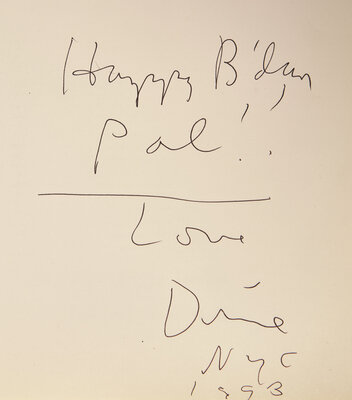 Happy B'day
Pal!!
Love
NYC
1993